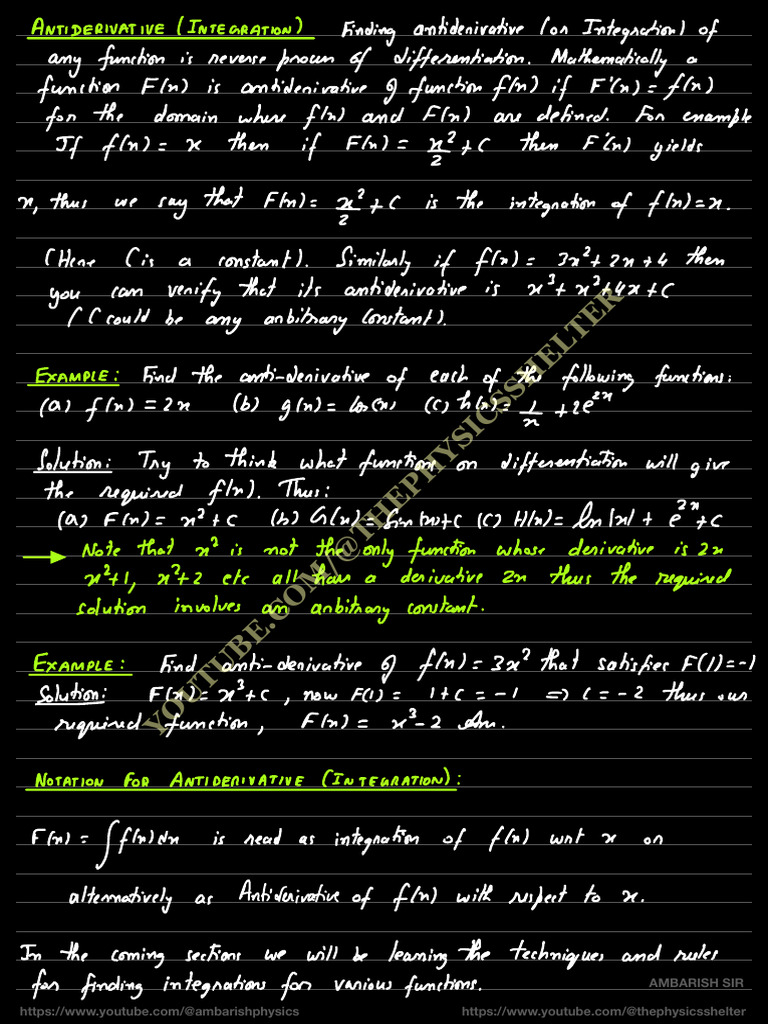 ANTIDERIVATIVE (INTEGRATION) Finding antiderivative (or Integration) of
any function is reverse process of differentiation. Mathematically a
function F(x) is antiderivative of function f(x) if F'(x) = f(x)
for the domain where f(x) and F(x) are defined. For example
If f(x) = x then if F(x) = x²/2 + C then F'(x) yields
x, thus we say that F(x) = x²/2 + C is the integration of f(x) = x.
(Here C is a constant). Similarly if f(x) = 3x² + 2x + 4 then
you can verify that its antiderivative is x³ + x² + 4x + C
(C could be any arbitrary constant).
EXAMPLE: Find the anti-derivative of each of the following functions:
(a) f(x) = 2x (b) g(x) = cos(x) (c) h(x) = 1/x + 2e^{2x}
Solution: Try to think what functions on differentiation will give
the required f(x). Thus:
(a) F(x) = x² + C (b) G(x) = Sin(x) + C (c) H(x) = ln|x| + e^{2x} + C
→ Note that x² is not the only function whose derivative is 2x
x²+1, x²+2 etc all have a derivative 2x thus the required
solution involves an arbitrary constant.
EXAMPLE: Find anti-derivative of f(x) = 3x² that satisfies F(1) = -1
Solution: F(x) = x³ + C, now F(1) = 1 + C = -1 ⇒ C = -2 thus our
required function, F(x) = x³ - 2 Ans.
NOTATION FOR ANTIDERIVATIVE (INTEGRATION):
F(x) = ∫ f(x) dx is read as integration of f(x) wrt x or
alternatively as Antiderivative of f(x) with respect to x.
In the coming sections we will be learning the techniques and rules
for finding integrations for various functions.
YOUTUBE.COM/@THEPHYSICSSHELTER
AMBARISH SIR
https://www.youtube.com/@ambarishphysics https://www.youtube.com/@thephysicsshelter